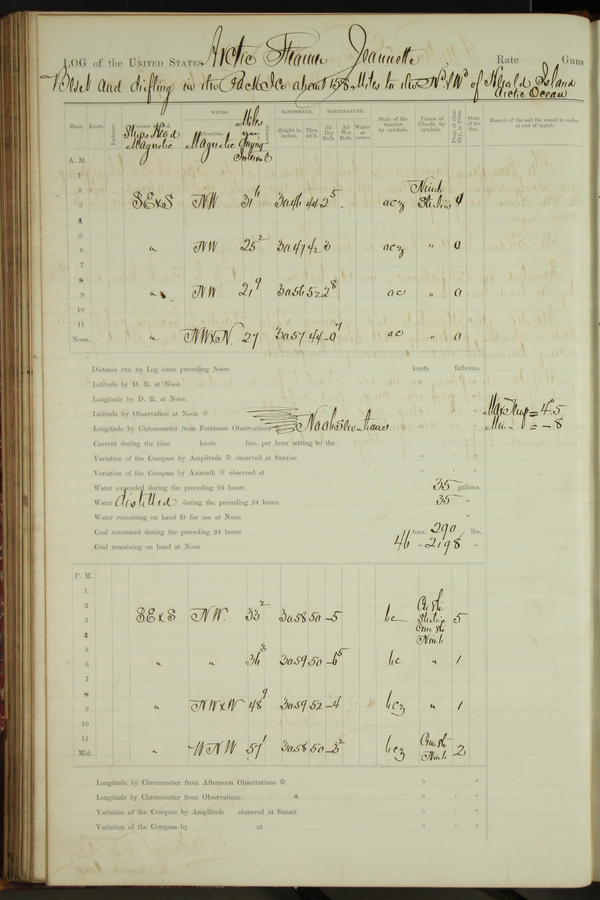 LOG of the UNITED STATES Arctic Steamer Jeannette Rate Guns
Beset and drifting in the Pack Ice about 158 Miles to the Nd & Wd of Herald Island
Arctic Ocean
Hour. Knots. Ship's Head Magnetic WINDS. Direction. Magnetic Miles during Interval BAROMETER. Height in inches. Ther. att'd. TEMPERATURE. Air Dry Bulb. Air Wet Bulb. Water at surface. State of the weather by symbols. Forms of Clouds by symbols. State of the Sea. Record of the sail the vessel is under at end of watch.
A. M.
1
2 Nimb
3 SExS NW 31 6 30.46 44 2 5 acz 0
4
5
6 " NW 25 2 30.47 42 acz " 0
7
8
9 " NW 21 9 30.56 52 2 8 ac " 0
10
11
Noon. " NWxN 27 30.57 44 ac " 0
Distance run by Log since preceding Noon knots fathoms.
Latitude by D. R. at Noon
Longitude by D. R. at Noon
Latitude by Observation at Noon Max Temp = 4.5
Longitude by Chronometer from Forenoon Observations No observations Min " = -8
Current during the time knots fms. per hour setting to the
Variation of the Compass by Amplitude observed at Sunrise
Variation of the Compass by Azimuth observed at
Water expended during the preceding 24 hours 35 gallons.
Water distilled during the preceding 24 hours 35 "
Water remaining on hand fit for use at Noon "
Coal consumed during the preceding 24 hours tons. 290 lbs.
Coal remaining on hand at Noon 46 " 2198 "
P. M.
1
2
3 SExS NW. 33 2 30.58 50 -5 bc 5
4 Nimb
5
6 " " 36 3 30.59 50 -6 5 bc " 1
7
8
9 " NWxW 48 9 30.59 52 -4 bcz " 1
10
11
Mid. " WNW 57 1 30.58 50 bcz Nimb 2
Longitude by Chronometer from Afternoon Observations
Longitude by Chronometer from Observations
Variation of the Compass by Amplitude observed at Sunset
Variation of the Compass by at